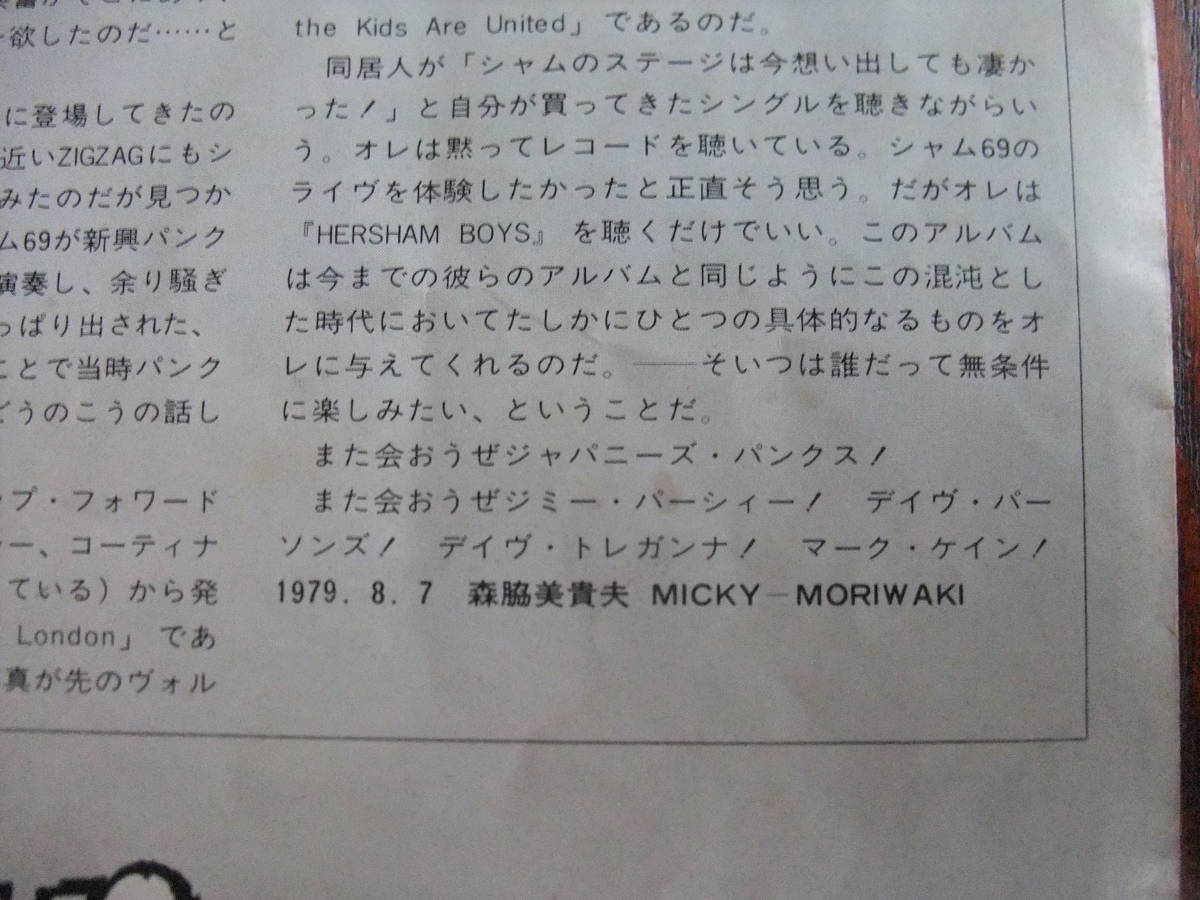 欲したのだ……と
に登場してきたの
近いZIGZAGにもシ
みたのだが見つか
ム69が新興パンク
演奏し、余り騒ぎ
っぱり出された、
ことで当時パンク
どうのこうの話し
ップ・フォワード
ー、コーティナ
ている)から発
London」であ
真が先のヴォル
the Kids Are United」であるのだ。
同居人が「シャムのステージは今想い出しても凄か
った!」と自分が買ってきたシングルを聴きながらい
う。オレは黙ってレコードを聴いている。シャム69の
ライヴを体験したかったと正直そう思う。だがオレは
『HERSHAM BOYS』を聴くだけでいい。このアルバム
は今までの彼らのアルバムと同じようにこの混沌とし
た時代においてたしかにひとつの具体的なるものをオ
レに与えてくれるのだ。──そいつは誰だって無条件
に楽しみたい、ということだ。
また会おうぜジャパニーズ・パンクス!
また会おうぜジミー・パーシィー! デイヴ・パー
ソンズ! デイヴ・トレガンナ! マーク・ケイン!
1979. 8. 7 森脇美貴夫 MICKY-MORIWAKI